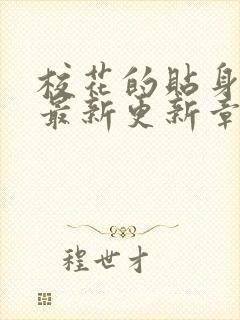 校花的贴身
最新更新章
程世才